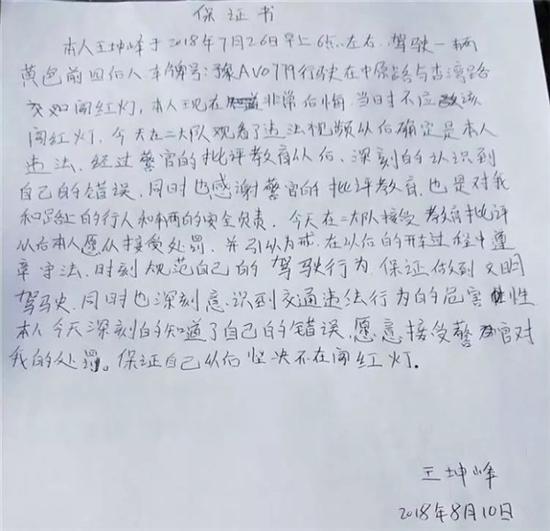 保证书
本人王坤峰于2018年7月26日早上6点左右.驾驶一辆
黄色前四后八车牌号:豫AV0779行驶在中原路与杏湾路
交叉闯红灯,本人现在知道非常后悔,当时不应该
闯红灯.今天在二大队观看了违法视频从后确定是本人
违法.经过警官的批评教育从后、深刻的认识到
自己的错误.同时也感谢警官的批评教育.也是对我
和路上的行人和车辆的安全负责.今天在二大队接受教育批评
从后本人愿从接受处罚.并引以为戒.在以后的开车过程中遵
章守法.时刻规范自己的驾驶行为.保证做到文明
驾驶.同时也深刻意识到交通违法行为的危害性
本人今天深刻的知道了自己的错误.愿意接受警官对
我的处罚。保证自己从后坚决不在闯红灯.
王坤峰
2018年8月10日